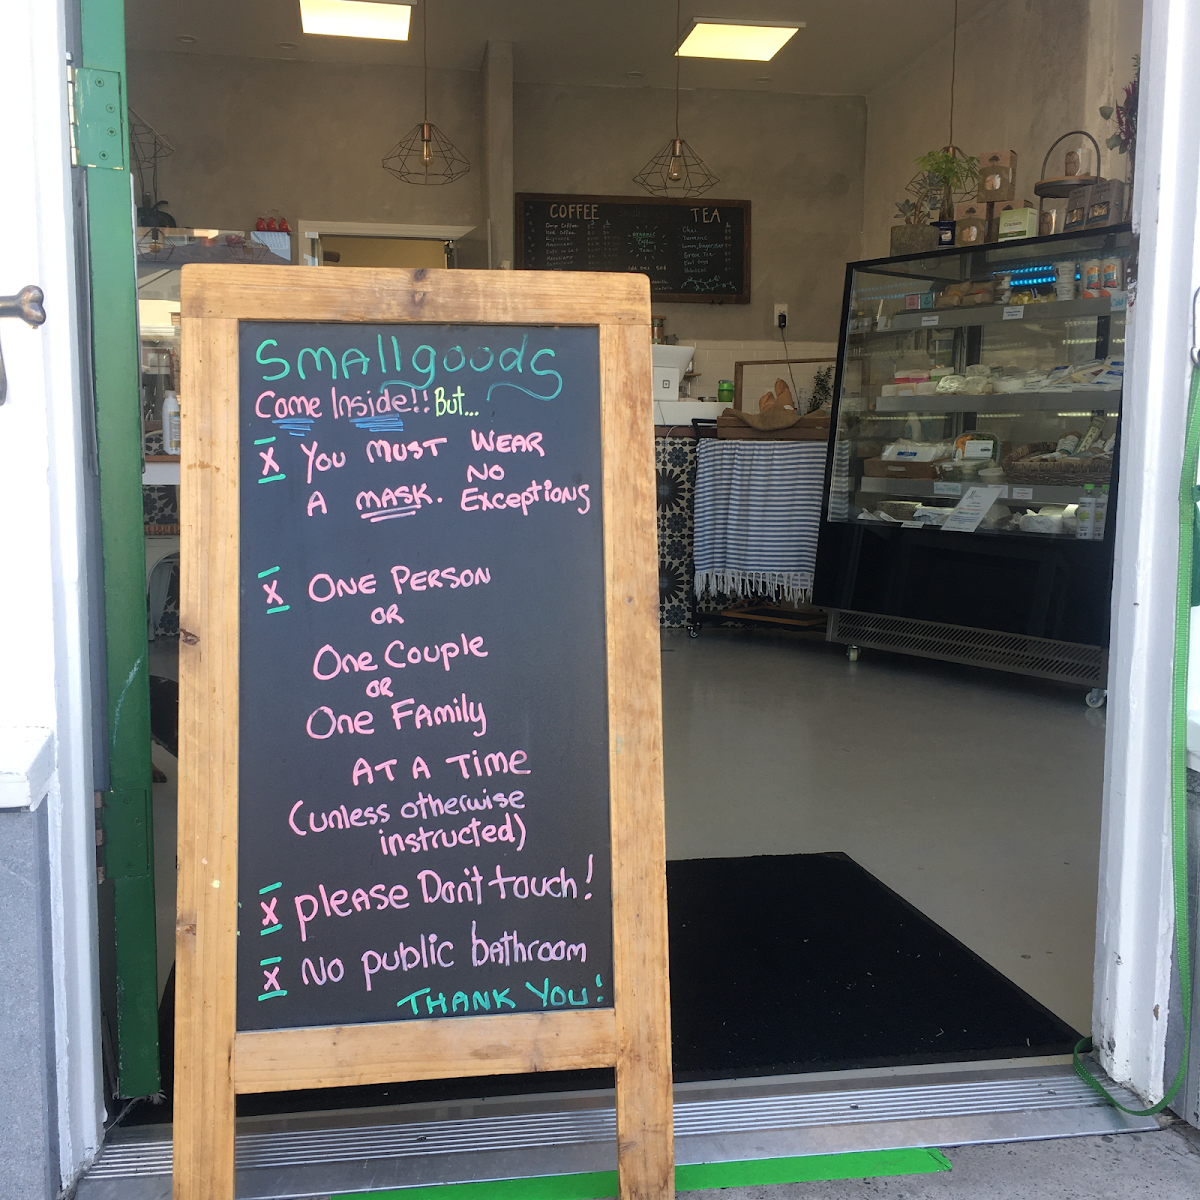 COFFEE
TEA
Drip Coffee
Chai
Turmeric
Green Tea
Smallgoods
Come Inside!! But...
X You MUST WEAR
NO
A MASK. Exceptions
X ONE PERSON
OR
One Couple
OR
One Family
AT A Time
(unless otherwise
instructed)
X please Don't touch!
X No public bathroom
THANK YOU!